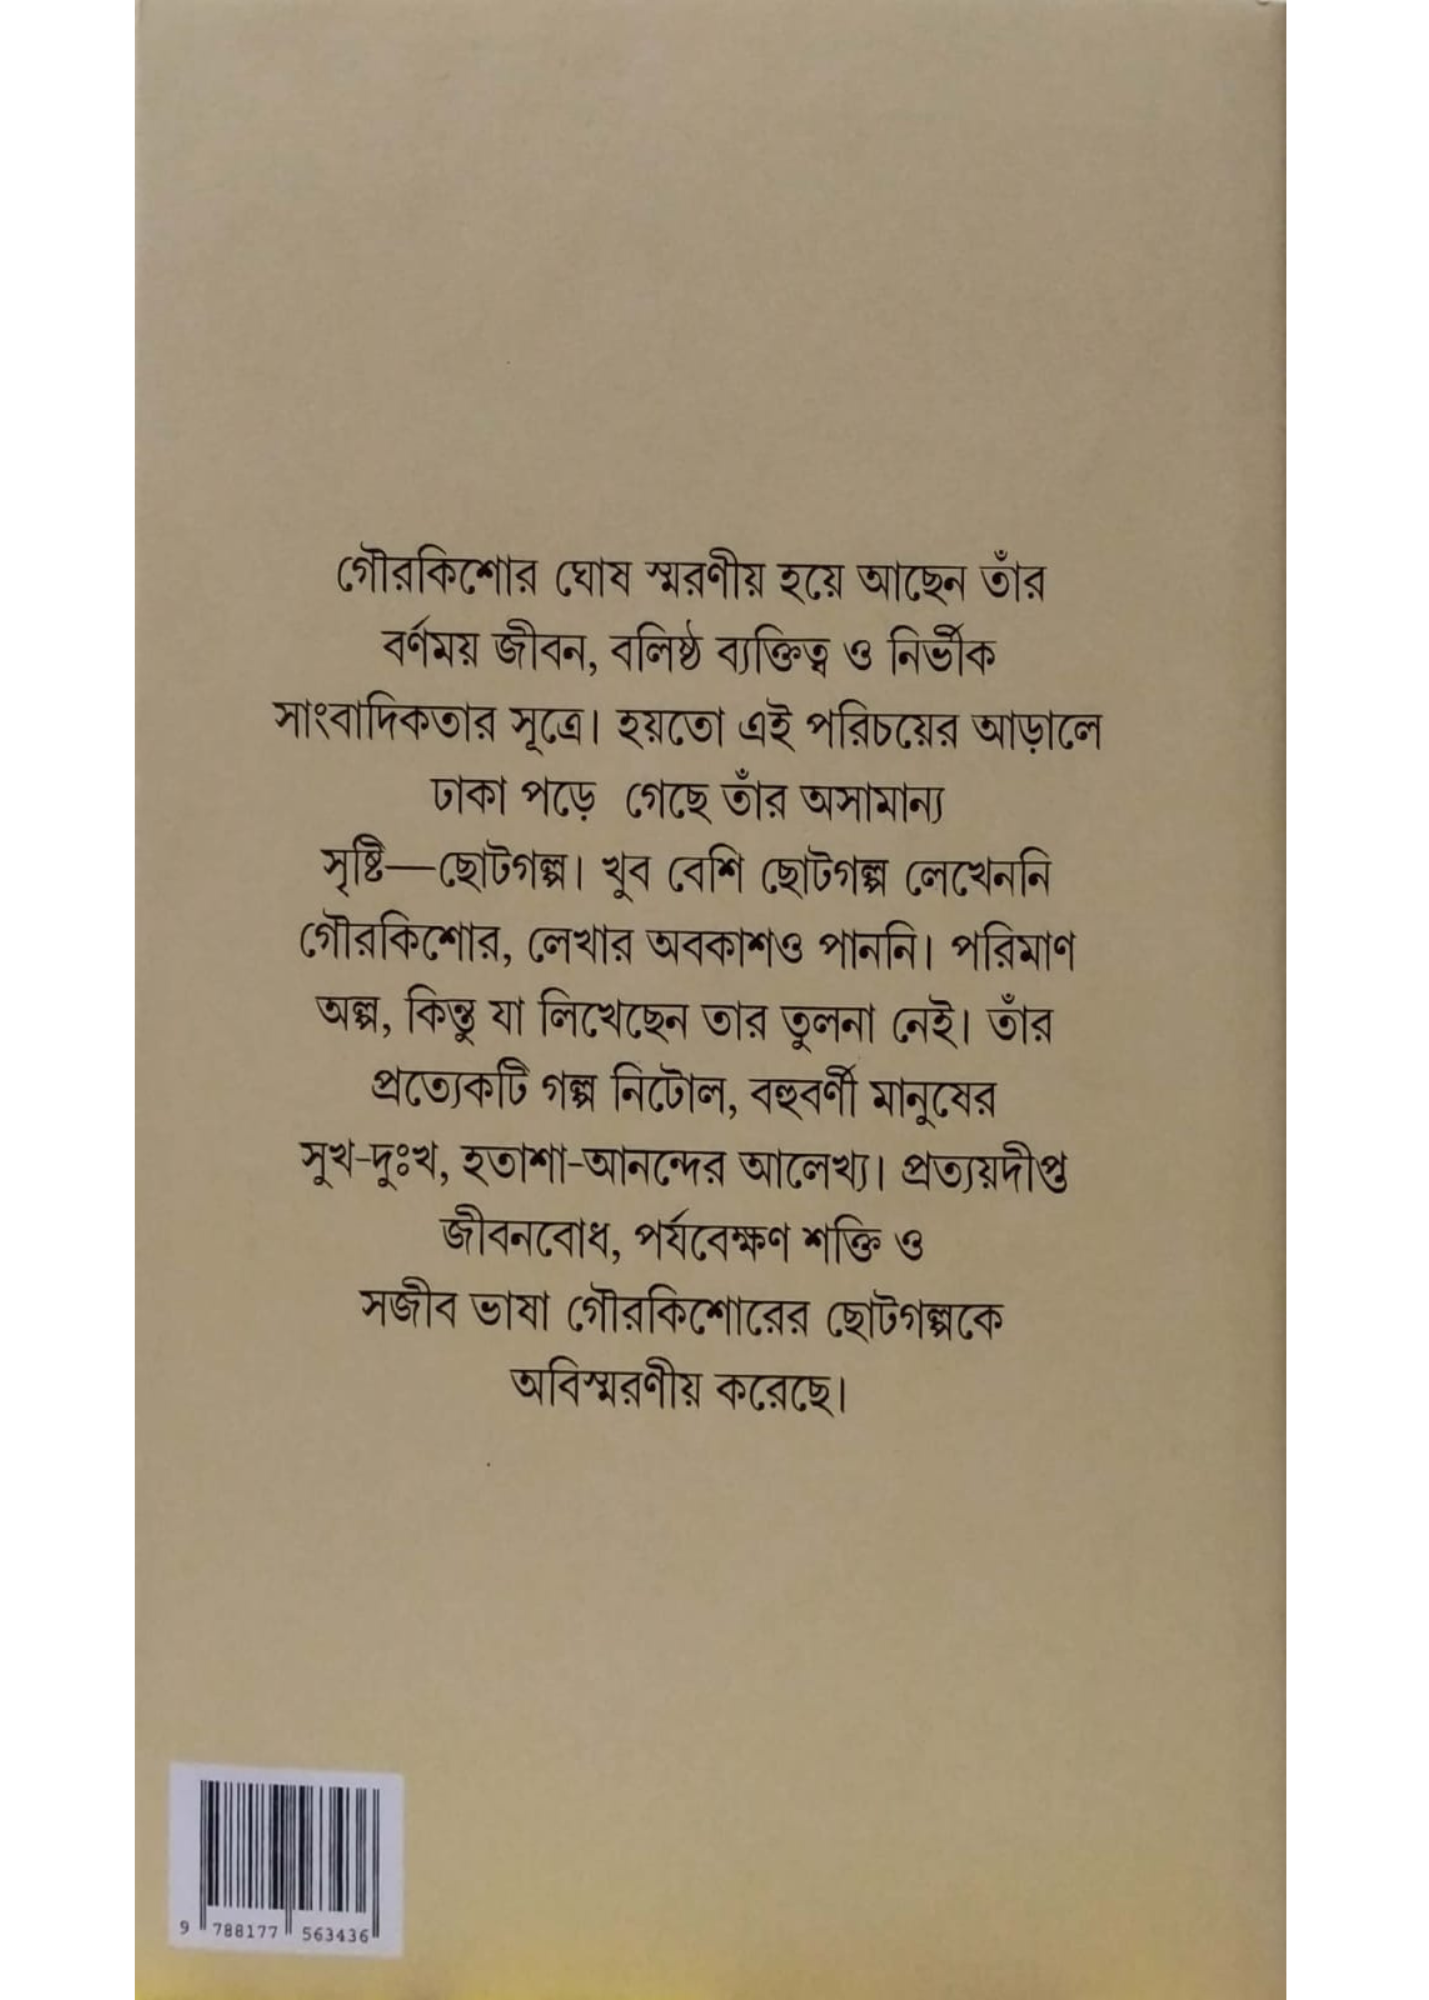 গৌরকিশোর ঘোষ স্মরণীয় হয়ে আছেন তাঁর
বর্ণময় জীবন, বলিষ্ঠ ব্যক্তিত্ব ও নির্ভীক
সাংবাদিকতার সূত্রে। হয়তো এই পরিচয়ের আড়ালে
ঢাকা পড়ে গেছে তাঁর অসামান্য
সৃষ্টি—ছোটগল্প। খুব বেশি ছোটগল্প লেখেননি
গৌরকিশোর, লেখার অবকাশও পাননি। পরিমাণ
অল্প, কিন্তু যা লিখেছেন তার তুলনা নেই। তাঁর
প্রত্যেকটি গল্প নিটোল, বহুবর্ণী মানুষের
সুখ-দুঃখ, হতাশা-আনন্দের আলেখ্য। প্রত্যয়দীপ্ত
জীবনবোধ, পর্যবেক্ষণ শক্তি ও
সজীব ভাষা গৌরকিশোরের ছোটগল্পকে
অবিস্মরণীয় করেছে।
9 788177 563436